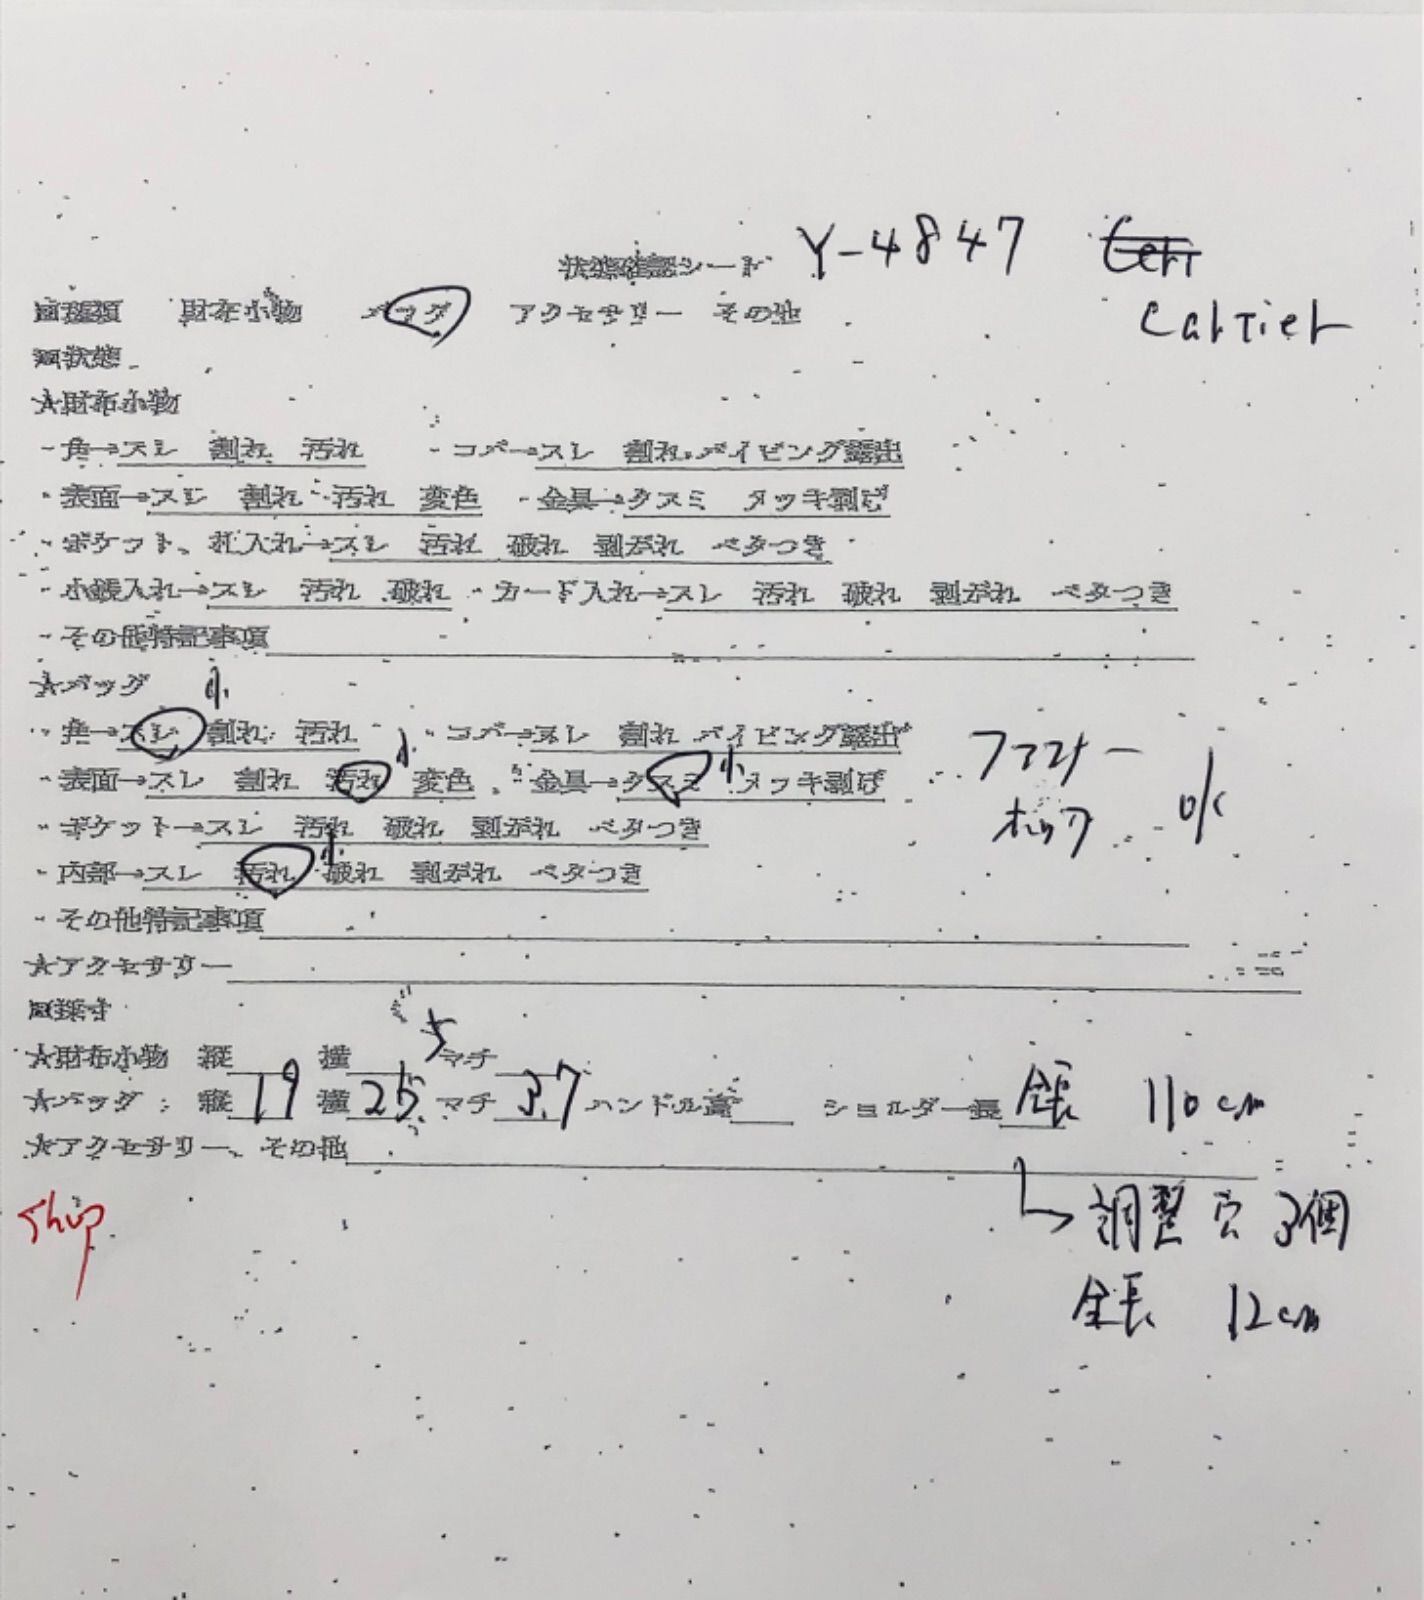 状態確認シート Y-4847
Cartier
■種類 財布小物 バッグ アクセサリー その他
■状態
★財布小物
・角→スレ 割れ 汚れ ・コバ→スレ 割れ パイピング露出
・表面→スレ 割れ 汚れ 変色 ・金具→クスミ メッキ剥げ
・ポケット、札入れ→スレ 汚れ 破れ 剥がれ ベタつき
・小銭入れ→スレ 汚れ 破れ ・カード入れ→スレ 汚れ 破れ 剥がれ ベタつき
・その他特記事項
★バッグ 小
・角→スレ 割れ 汚れ ・コバ→スレ 割れ パイピング露出
・表面→スレ 割れ 汚れ 小 変色 ・金具→クスミ 小 メッキ剥げ
ファスナー
ホック OK
・ポケット→スレ 汚れ 破れ 剥がれ ベタつき
・内部→スレ 汚れ 小 破れ 剥がれ ベタつき
・その他特記事項
★アクセサリー
■採寸
★財布小物 縦 横 マチ
★バッグ 縦 19 横 25 マチ 3.7 ハンドル高 ショルダー長 全長 110cm
★アクセサリー、その他
調整穴 3個
全長 12cm